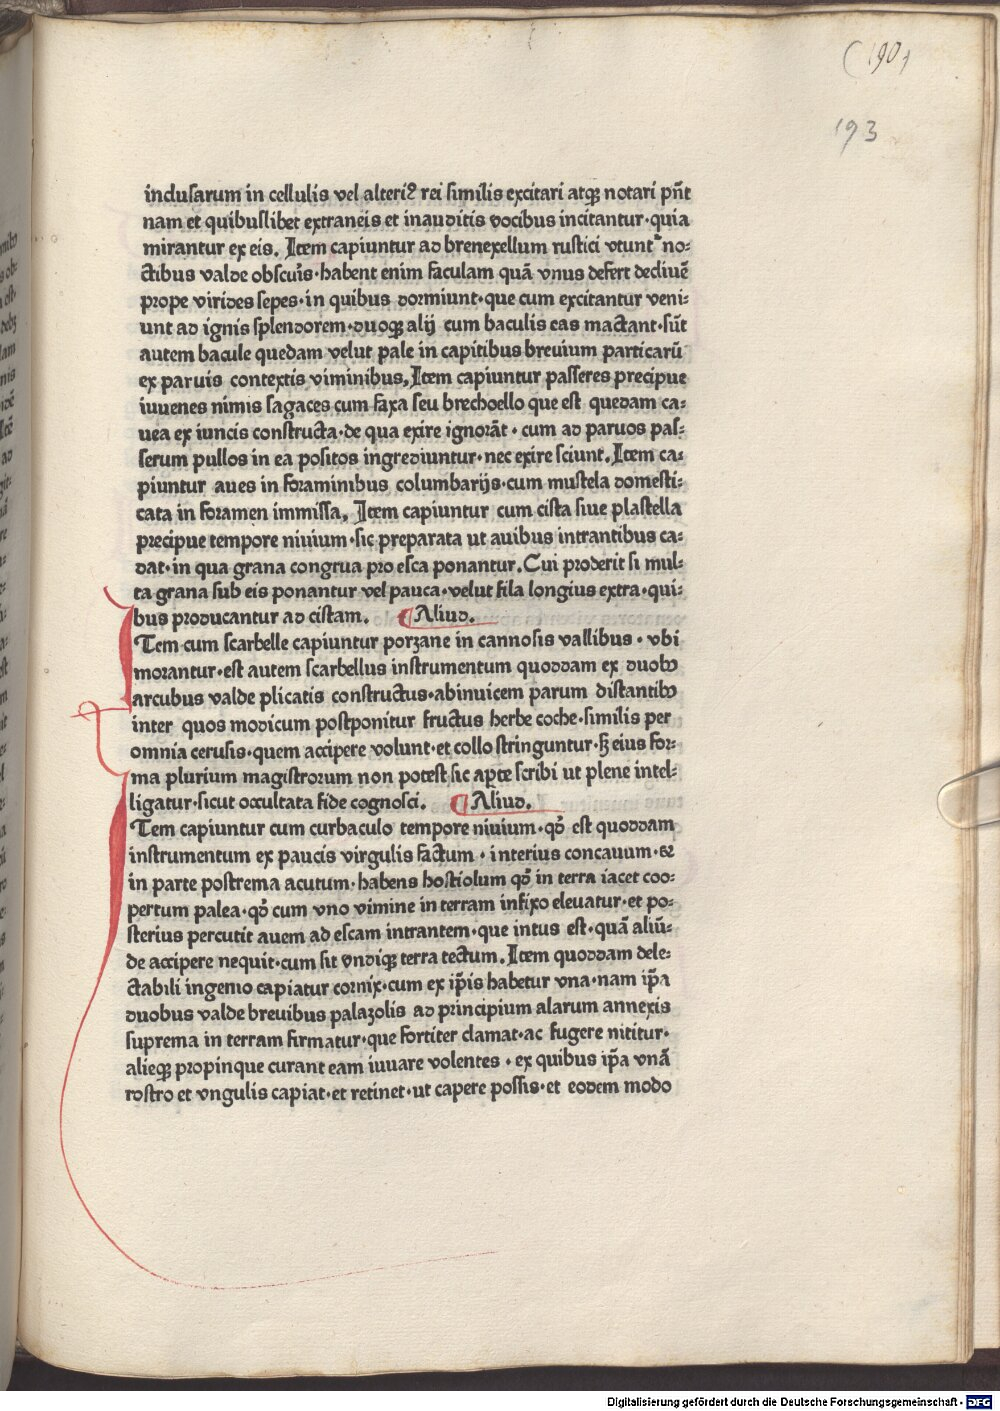 (190)
193
inclusarum in cellulis vel alteriꝰ rei similis excitari atqꝫ notari pn̄t
nam et quibuslibet extraneis et inauditis vocibus incitantur·quia
mirantur ex eis. Item capiuntur ad brenexellum rustici vtunt᷑ no⸗
ctibus valde obscuris·habent enim faculam quā vnus defert decliuē
prope virides sepes·in quibus dormiunt·que cum excitantur veni⸗
unt ad ignis splendorem·duoqꝫ alij cum baculis eas mactant·sūt
autem bacule quedam velut pale in capitibus breuium particarū
ex paruis contextis viminibus. Item capiuntur passeres precipue
iuuenes nimis sagaces cum faxa seu brechoello que est quedam ca⸗
uea ex iuncis constructa·de qua exire ignorāt·cum ad paruos pas⸗
serum pullos in ea positos ingrediuntur·nec exire sciunt. Item ca⸗
piuntur aues in foraminibus columbarijs·cum mustela domesti⸗
cata in foramen immissa. Item capiuntur cum cista siue plastella
precipue tempore niuium·sic preparata ut auibus intrantibus ca⸗
dat·in qua grana congrua pro esca ponantur. Cui proderit si mul⸗
ta grana sub eis ponantur vel pauca·velut fila longius extra·qui⸗
bus producantur ad cistam. ¶ Aliud.
ITem cum scarbelle capiuntur porzane in cannosis vallibus·vbi
morantur·est autem scarbellus instrumentum quoddam ex duobꝰ
arcubus valde plicatis constructus·abinuicem parum distantibꝰ
inter quos modicum postponitur fructus herbe coche·similis per
omnia cerusis·quem accipere volunt·et collo stringuntur·sꝫ eius for⸗
ma plurium magistrorum non potest sic apte scribi ut plene intel⸗
ligatur·sicut occultata fide cognosci. ¶ Aliud.
ITem capiuntur cum curbaculo tempore niuium·qd̄ est quoddam
instrumentum ex paucis virgulis factum·interius concauum·⁊
in parte postrema acutum·habens hostiolum qd̄ in terra iacet coo⸗
pertum palea·qd̄ cum vno vimine in terram infixo eleuatur·et po⸗
sterius percutit auem ad escam intrantem·que intus est·quā aliū⸗
de accipere nequit·cum sit vndiqꝫ terra tectum. Item quoddam dele⸗
ctabili ingenio capiatur cornix·cum ex ip̄is habetur vna·nam ip̄a
duobus valde breuibus palazolis ad principium alarum annexis
suprema in terram firmatur·que fortiter clamat·ac fugere nititur·
alieqꝫ propinque curant eam iuuare volentes·ex quibus ip̄a vnā
rostro et vngulis capiat·et retinet·ut capere possis·et eodem modo
Digitalisierung gefördert durch die Deutsche Forschungsgemeinschaft - DFG